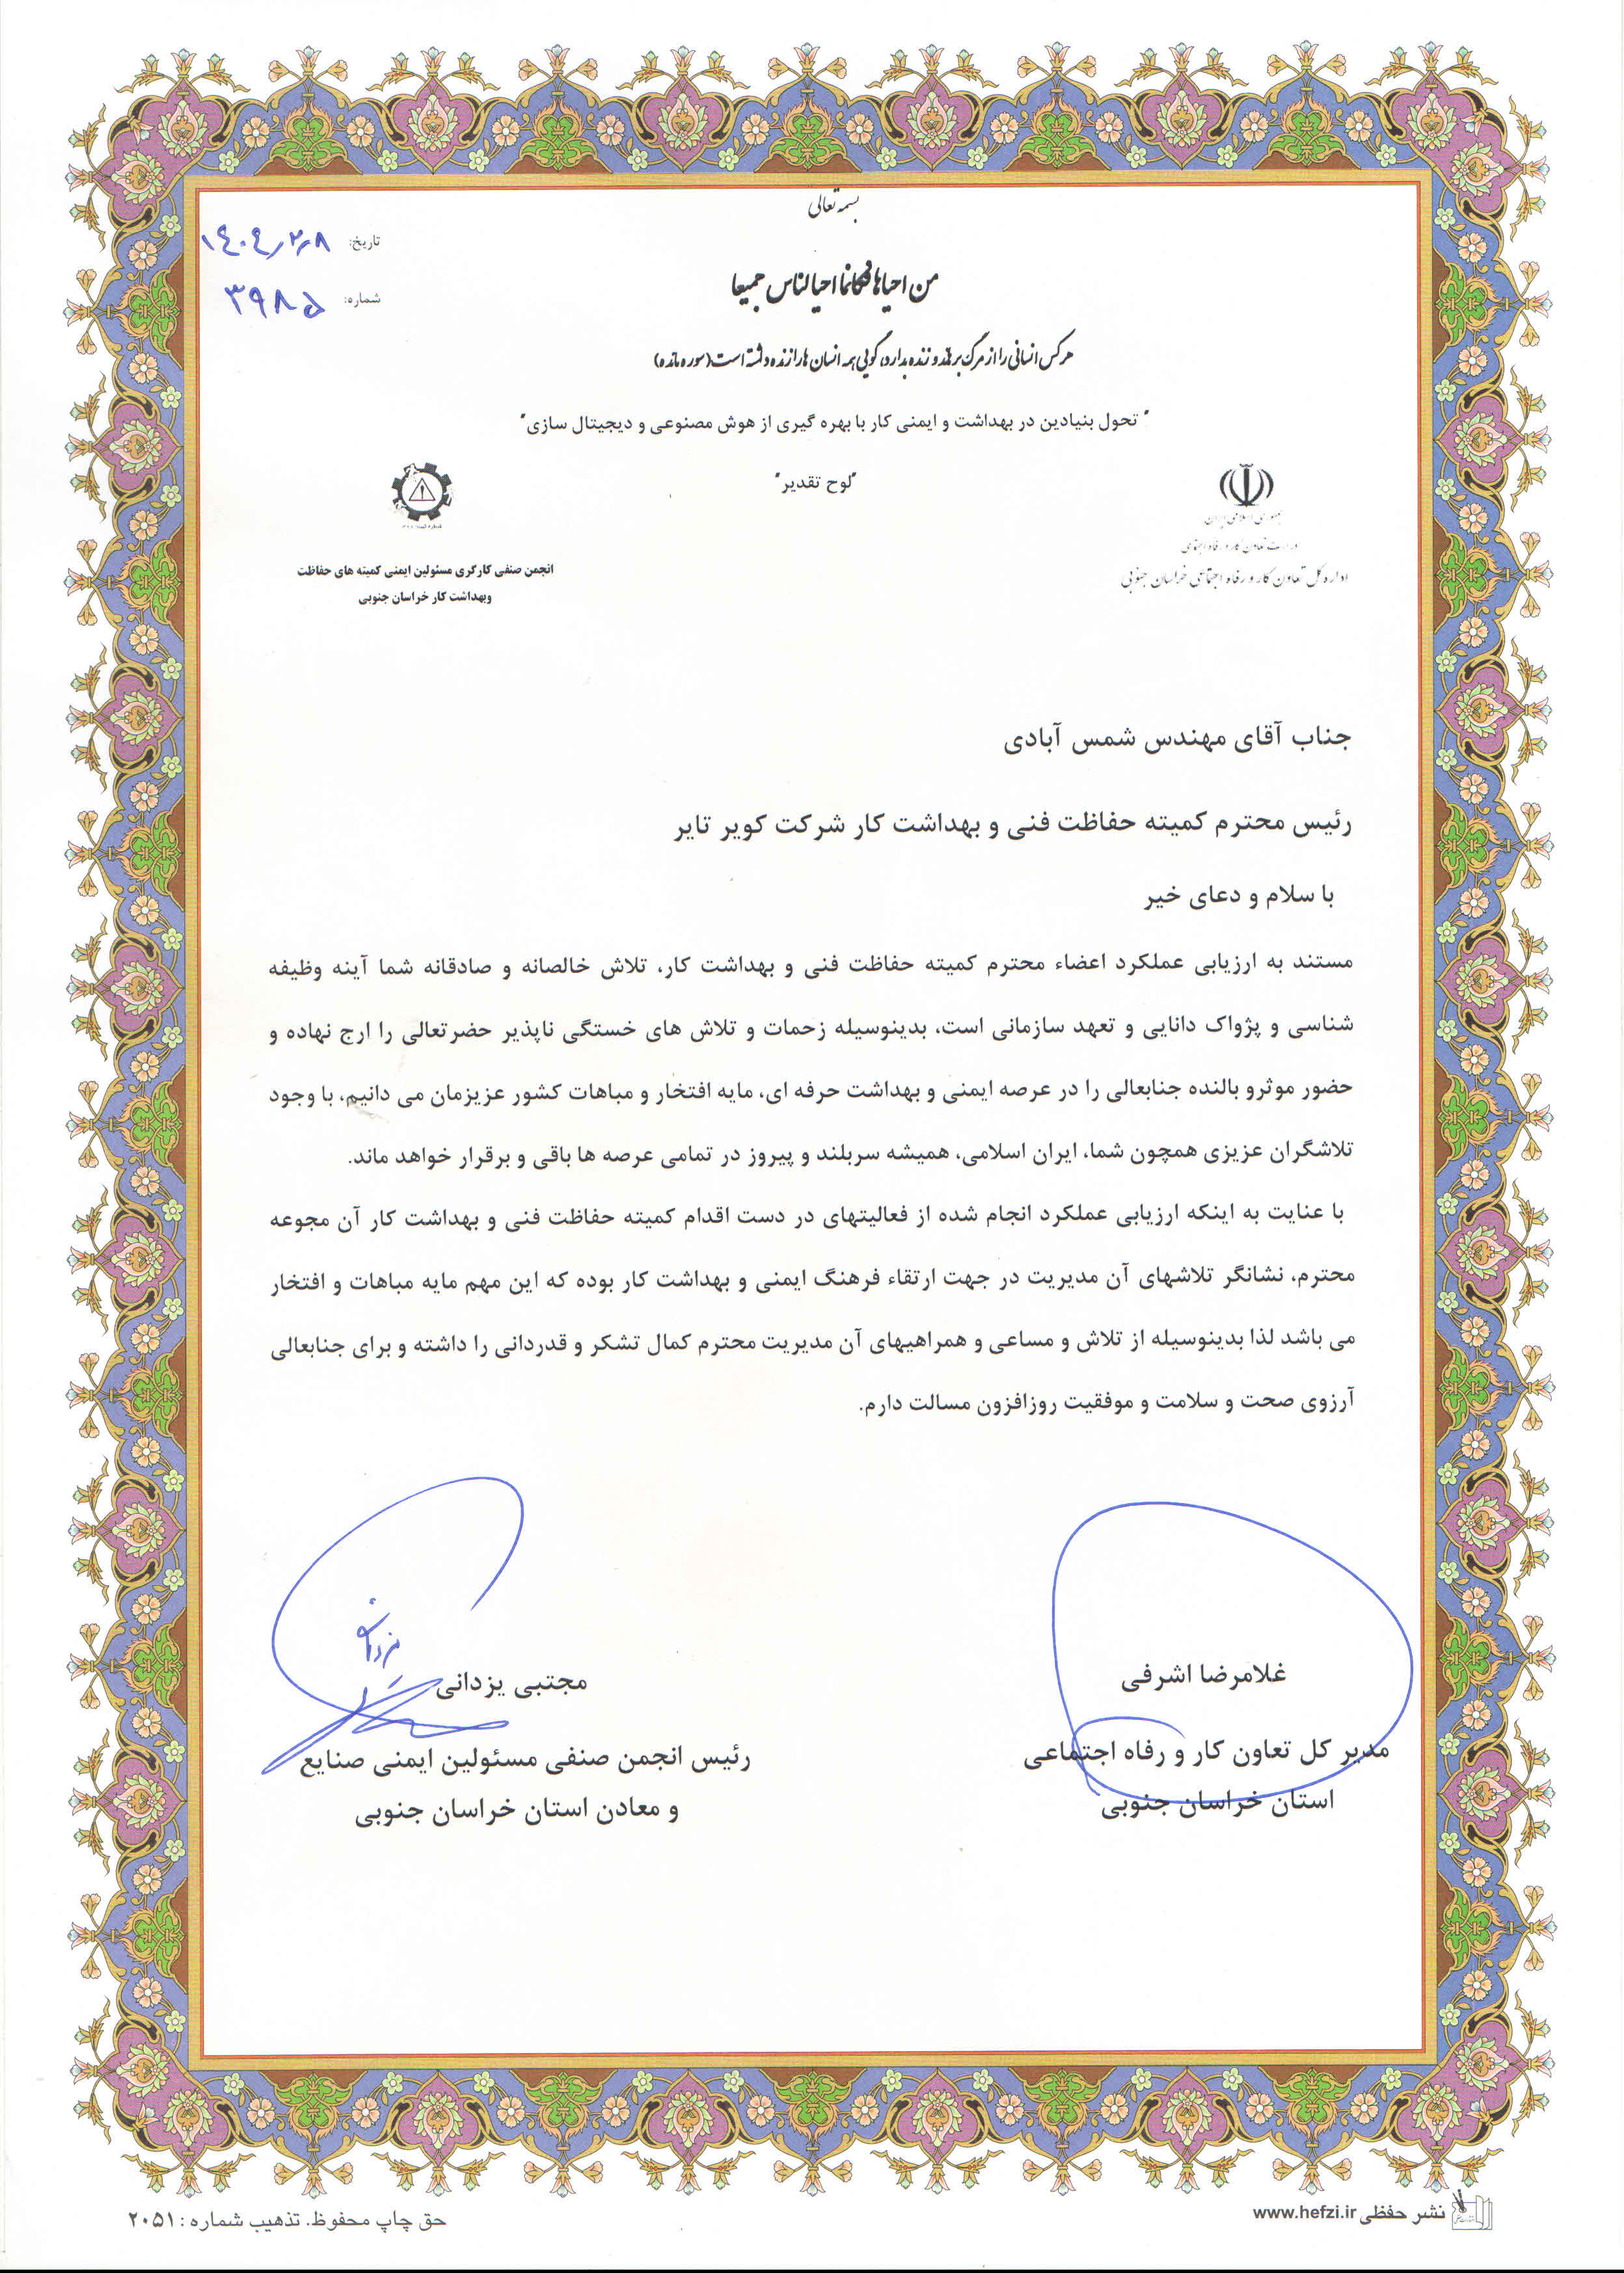 بسمه تعالی
تاریخ: ۱۴۰۴/۲/۰۸
من احیاها فکانما احیا الناس جمیعا
شماره: ۳۹۸۵
هر کس انسانی را از مرگ برهاند و زنده بدارد، گویی همه انسان ها را زنده داشته است (سوره مائده)
" تحول بنیادین در بهداشت و ایمنی کار با بهره گیری از هوش مصنوعی و دیجیتال سازی"
"لوح تقدیر"
جمهوری اسلامی ایران
وزارت تعاون کار و رفاه اجتماعی
اداره کل تعاون کار و رفاه اجتماعی خراسان جنوبی
انجمن صنفی کارگری مسئولین ایمنی کمیته های حفاظت
وبهداشت کار خراسان جنوبی
جناب آقای مهندس شمس آبادی
رئیس محترم کمیته حفاظت فنی و بهداشت کار شرکت کویر تایر
با سلام و دعای خیر
مستند به ارزیابی عملکرد اعضاء محترم کمیته حفاظت فنی و بهداشت کار، تلاش خالصانه و صادقانه شما آینه وظیفه
شناسی و پژواک دانایی و تعهد سازمانی است، بدینوسیله زحمات و تلاش های خستگی ناپذیر حضرتعالی را ارج نهاده و
حضور موثرو بالنده جنابعالی را در عرصه ایمنی و بهداشت حرفه ای، مایه افتخار و مباهات کشور عزیزمان می دانیم، با وجود
تلاشگران عزیزی همچون شما، ایران اسلامی، همیشه سربلند و پیروز در تمامی عرصه ها باقی و برقرار خواهد ماند.
با عنایت به اینکه ارزیابی عملکرد انجام شده از فعالیتهای در دست اقدام کمیته حفاظت فنی و بهداشت کار آن مجوعه
محترم، نشانگر تلاشهای آن مدیریت در جهت ارتقاء فرهنگ ایمنی و بهداشت کار بوده که این مهم مایه مباهات و افتخار
می باشد لذا بدینوسیله از تلاش و مساعی و همراهیهای آن مدیریت محترم کمال تشکر و قدردانی را داشته و برای جنابعالی
آرزوی صحت و سلامت و موفقیت روزافزون مسالت دارم.
غلامرضا اشرفی
مدیر کل تعاون کار و رفاه اجتماعی
استان خراسان جنوبی
مجتبی یزدانی
رئیس انجمن صنفی مسئولین ایمنی صنایع
و معادن استان خراسان جنوبی
نشر حفظی www.hefzi.ir
حق چاپ محفوظ. تذهیب شماره : ۲۰۵۱